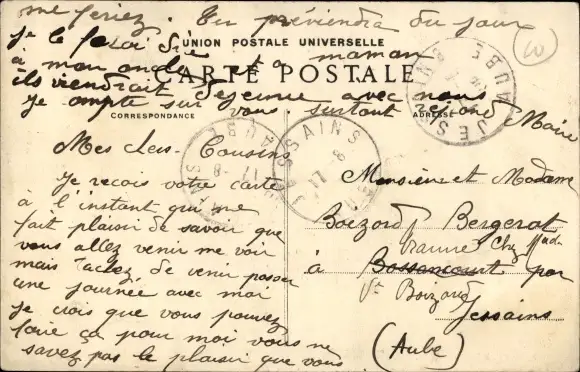 me feriez. Tu préviendra du jour
je le ferai dire
à mon oncle et a maman
ils viendrait dejeuné avec nous
Je compte sur vous surtout répond
Marie
UNION POSTALE UNIVERSELLE
CARTE POSTALE
CORRESPONDANCE
ADRESSE
JESSAINS
AUBE
JESSAINS
AUBE
17 -8
JESSAINS
17 -8
Mes chers Cousins
Je reçois votre carte
à l'instant qui me
fait plaisir de savoir que
vous allez venir me voir
mais tachez de venir passer
une journée avec moi
je crois que vous pouvez
faire ça pour moi vous ne
savez pas le plaisir que vous
Monsieur et Madame
Boizard Bergerat
Vanne Chez Mad.
à Bossancourt par
Ve Boizard
Jessains
(Aube)